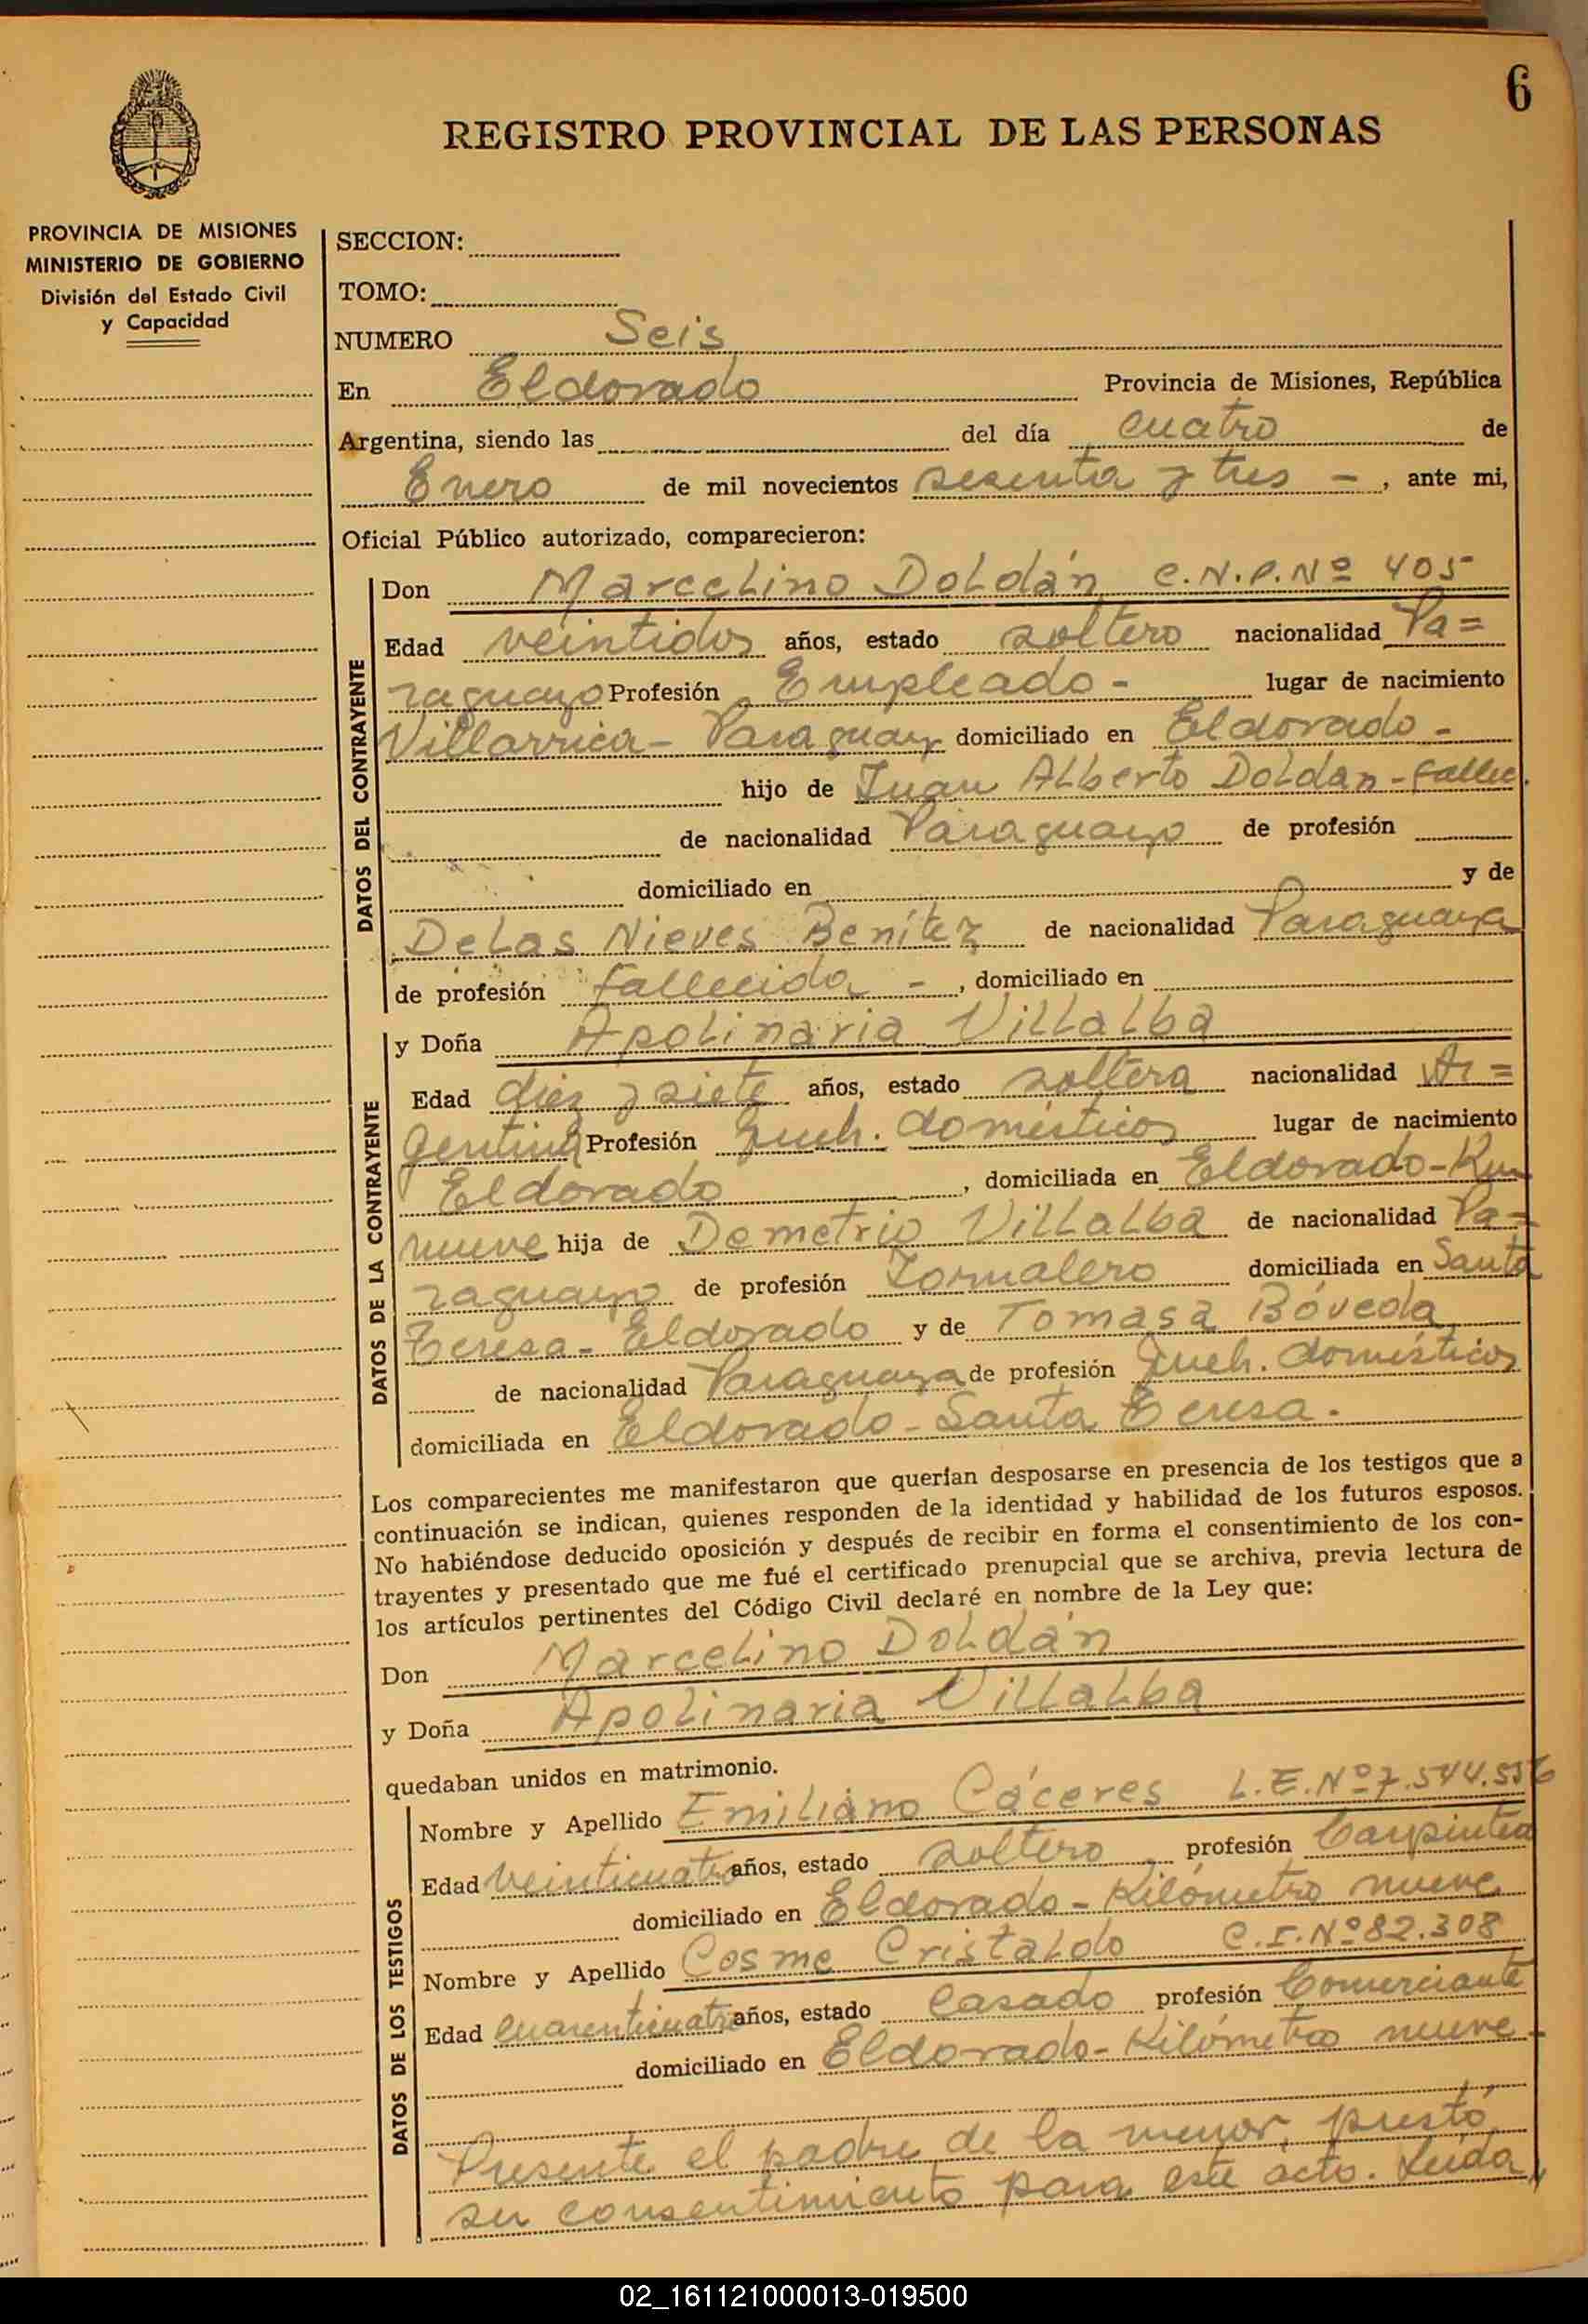 6
REGISTRO PROVINCIAL DE LAS PERSONAS
PROVINCIA DE MISIONES
MINISTERIO DE GOBIERNO
División del Estado Civil
y Capacidad
SECCION:
TOMO:
NUMERO Seis
En Eldorado Provincia de Misiones, República
Argentina, siendo las del día cuatro de
Enero de mil novecientos sesenta y tres -, ante mi,
Oficial Público autorizado, comparecieron:
DATOS DEL CONTRAYENTE
Don Marcelino Doldán C.N.P.Nº 405
Edad veintidos años, estado soltero nacionalidad Pa=
raguayo Profesión Empleado - lugar de nacimiento
Villarrica - Paraguay domiciliado en Eldorado -
hijo de Juan Alberto Doldan - fallec.
de nacionalidad Paraguayo de profesión
domiciliado en y de
De Las Nieves Benítez de nacionalidad Paraguaya
de profesión fallecida -, domiciliado en
DATOS DE LA CONTRAYENTE
y Doña Apolinaria Villalba
Edad diez y siete años, estado soltera nacionalidad Ar=
gentina Profesión Queh. domésticos lugar de nacimiento
Eldorado, domiciliada en Eldorado - Km
nueve hija de Demetrio Villalba de nacionalidad Pa=
raguayo de profesión Jornalero domiciliada en Santa
Teresa - Eldorado y de Tomasa Bóveda
de nacionalidad Paraguaya de profesión Queh. domésticos
domiciliada en Eldorado - Santa Teresa.
Los comparecientes me manifestaron que querían desposarse en presencia de los testigos que a
continuación se indican, quienes responden de la identidad y habilidad de los futuros esposos.
No habiéndose deducido oposición y después de recibir en forma el consentimiento de los con-
trayentes y presentado que me fué el certificado prenupcial que se archiva, previa lectura de
los artículos pertinentes del Código Civil declaré en nombre de la Ley que:
Don Marcelino Doldán
y Doña Apolinaria Villalba
quedaban unidos en matrimonio.
DATOS DE LOS TESTIGOS
Nombre y Apellido Emiliano Cáceres L.E.Nº 7.544.556
Edad veinticuatro años, estado soltero, profesión Carpintero
domiciliado en Eldorado - Kilómetro nueve
Nombre y Apellido Cosme Cristaldo C.I.Nº 82.308
Edad cuarenticuatro años, estado Casado profesión Comerciante
domiciliado en Eldorado - Kilómetro nueve -
Presente el padre de la menor, prestó
su consentimiento para este acto. Leida
02_161121000013-019500